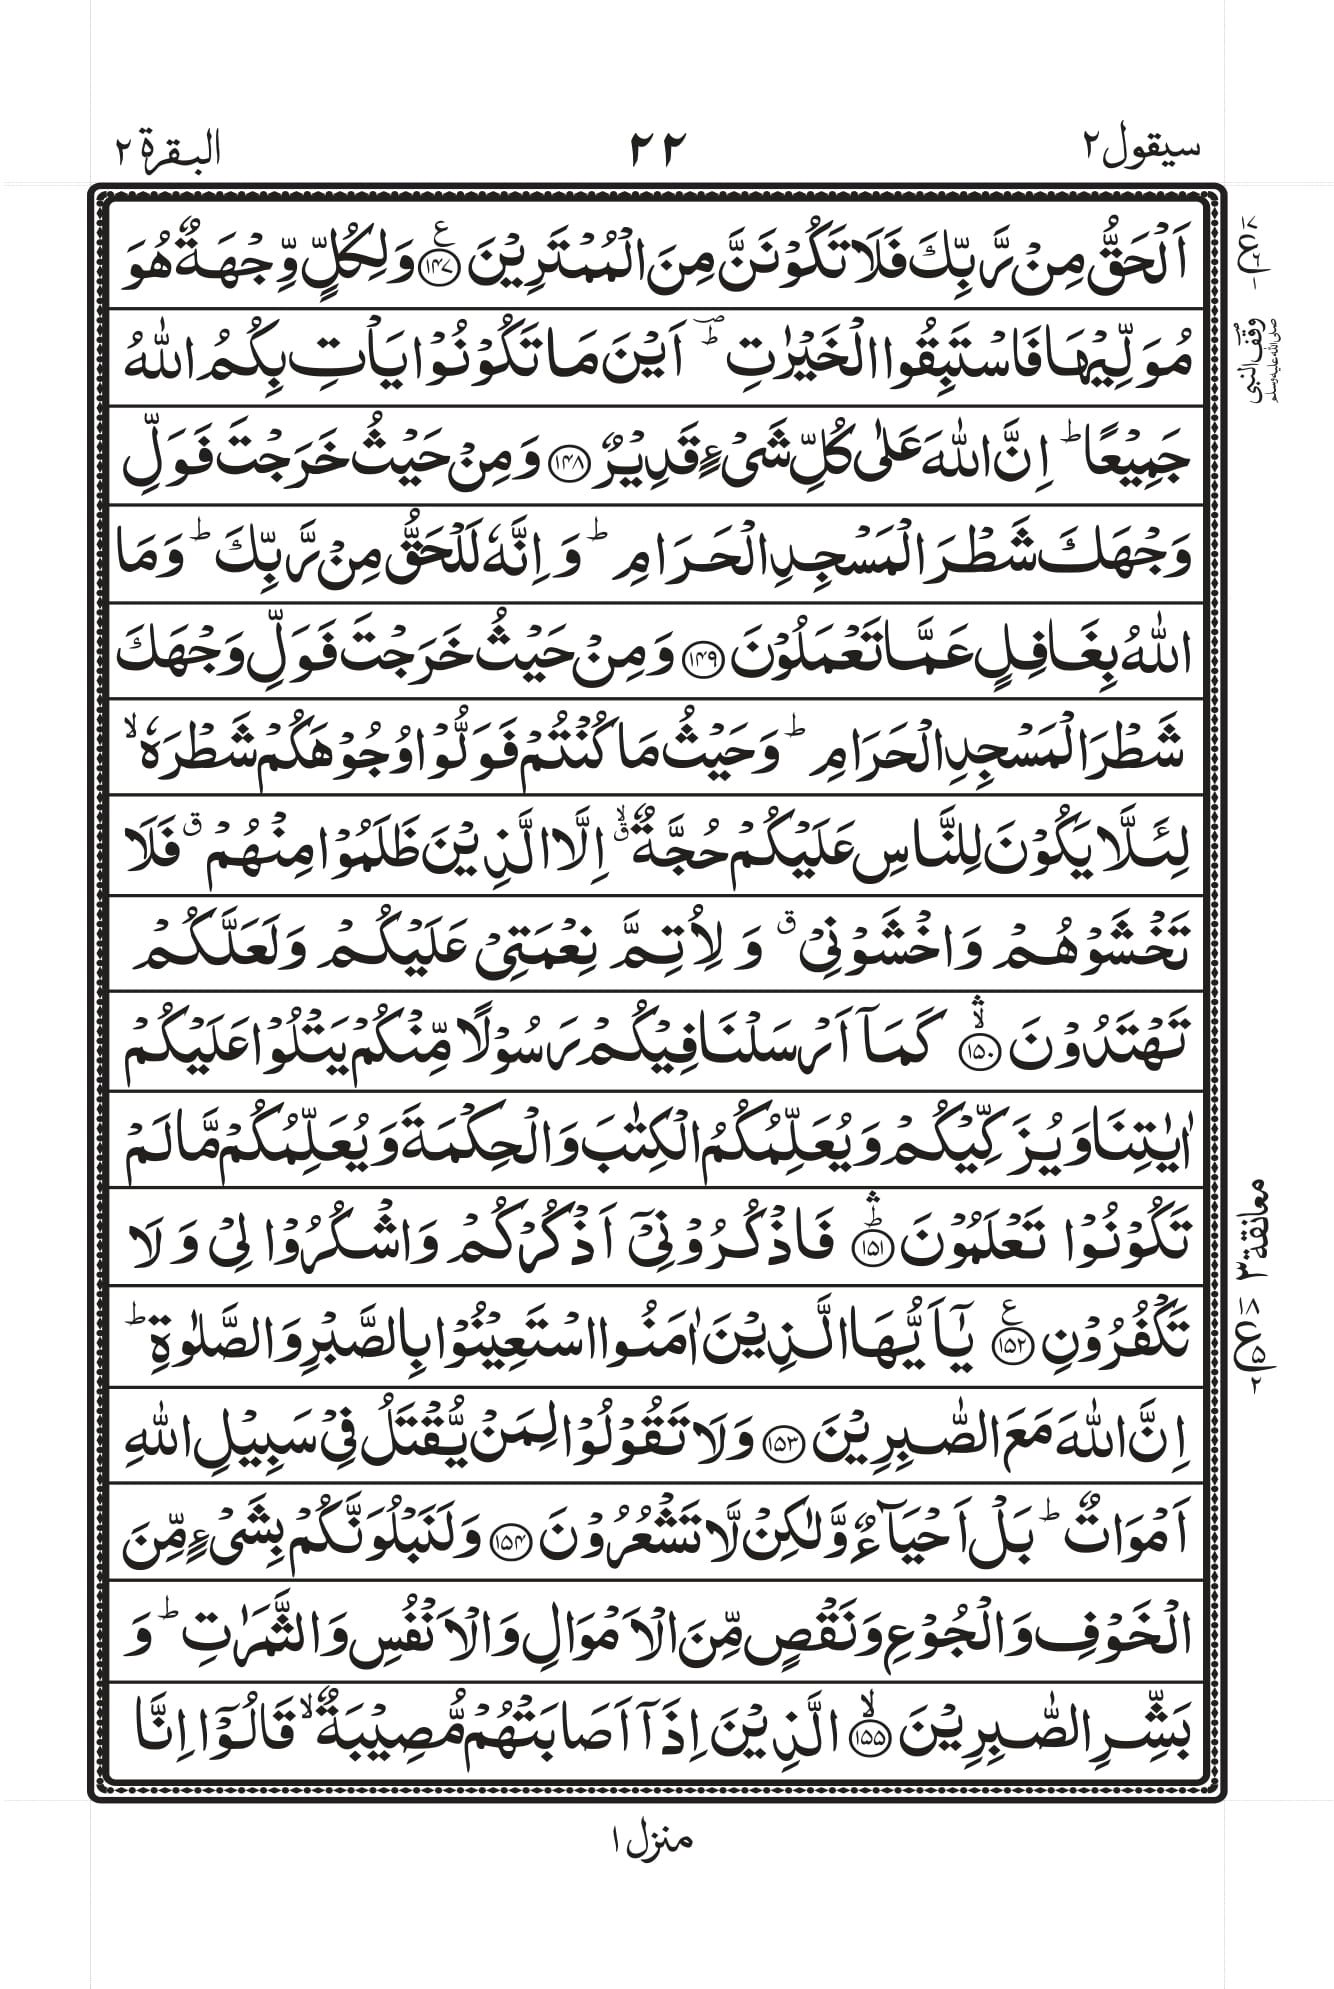 سيقول ٢
٢٢
البقرة ٢
اَلۡحَقُّ مِنۡ رَّبِّكَ فَلَا تَكُوۡنَنَّ مِنَ الۡمُمۡتَرِيۡنَ ﴿۱۴۷﴾ع وَلِكُلٍّ وِّجۡهَةٌ هُوَ
مُوَلِّيۡهَا فَاسۡتَبِقُوا الۡخَيۡرٰتِ ؕؔ اَيۡنَ مَا تَكُوۡنُوۡا يَاۡتِ بِكُمُ اللّٰهُ
جَمِيۡعًا ؕ اِنَّ اللّٰهَ عَلٰى كُلِّ شَىۡءٍ قَدِيۡرٌ ﴿۱۴۸﴾ وَمِنۡ حَيۡثُ خَرَجۡتَ فَوَلِّ
وَجۡهَكَ شَطۡرَ الۡمَسۡجِدِ الۡحَرَامِ ؕ وَاِنَّهٗ لَلۡحَقُّ مِنۡ رَّبِّكَ ؕ وَمَا
اللّٰهُ بِغَافِلٍ عَمَّا تَعۡمَلُوۡنَ ﴿۱۴۹﴾ وَمِنۡ حَيۡثُ خَرَجۡتَ فَوَلِّ وَجۡهَكَ
شَطۡرَ الۡمَسۡجِدِ الۡحَرَامِ ؕ وَحَيۡثُ مَا كُنۡتُمۡ فَوَلُّوۡا وُجُوۡهَكُمۡ شَطۡرَهٗ ۙ
لِئَلَّا يَكُوۡنَ لِلنَّاسِ عَلَيۡكُمۡ حُجَّةٌ ۙق اِلَّا الَّذِيۡنَ ظَلَمُوۡا مِنۡهُمۡ ق فَلَا
تَخۡشَوۡهُمۡ وَاخۡشَوۡنِىۡ ق وَلِاُتِمَّ نِعۡمَتِىۡ عَلَيۡكُمۡ وَلَعَلَّكُمۡ
تَهۡتَدُوۡنَ ۙۛ ﴿۱۵۰﴾ كَمَآ اَرۡسَلۡنَا فِيۡكُمۡ رَسُوۡلًا مِّنۡكُمۡ يَتۡلُوۡا عَلَيۡكُمۡ
اٰيٰتِنَا وَيُزَكِّيۡكُمۡ وَيُعَلِّمُكُمُ الۡكِتٰبَ وَالۡحِكۡمَةَ وَيُعَلِّمُكُمۡ مَّا لَمۡ
تَكُوۡنُوۡا تَعۡلَمُوۡنَ ؕۛ ﴿۱۵۱﴾ فَاذۡكُرُوۡنِىۡٓ اَذۡكُرۡكُمۡ وَاشۡكُرُوۡا لِىۡ وَلَا
تَكۡفُرُوۡنِ ﴿۱۵۲﴾ع يٰٓاَيُّهَا الَّذِيۡنَ اٰمَنُوا اسۡتَعِيۡنُوۡا بِالصَّبۡرِ وَالصَّلٰوةِ ؕ
اِنَّ اللّٰهَ مَعَ الصّٰبِرِيۡنَ ﴿۱۵۳﴾ وَلَا تَقُوۡلُوۡا لِمَنۡ يُّقۡتَلُ فِىۡ سَبِيۡلِ اللّٰهِ
اَمۡوَاتٌ ؕ بَلۡ اَحۡيَآءٌ وَّلٰكِنۡ لَّا تَشۡعُرُوۡنَ ﴿۱۵۴﴾ وَلَنَبۡلُوَنَّكُمۡ بِشَىۡءٍ مِّنَ
الۡخَوۡفِ وَالۡجُوۡعِ وَنَقۡصٍ مِّنَ الۡاَمۡوَالِ وَالۡاَنۡفُسِ وَالثَّمَرٰتِ ؕ وَ
بَشِّرِ الصّٰبِرِيۡنَ ۙ ﴿۱۵۵﴾ الَّذِيۡنَ اِذَآ اَصَابَتۡهُمۡ مُّصِيۡبَةٌ ۙ قَالُوۡٓا اِنَّا
۱۷
ع
۶
۱
وقف النبى صلى الله عليه وسلم
معانقة ۳
۱۸
ع
۵
۲
منزل ۱